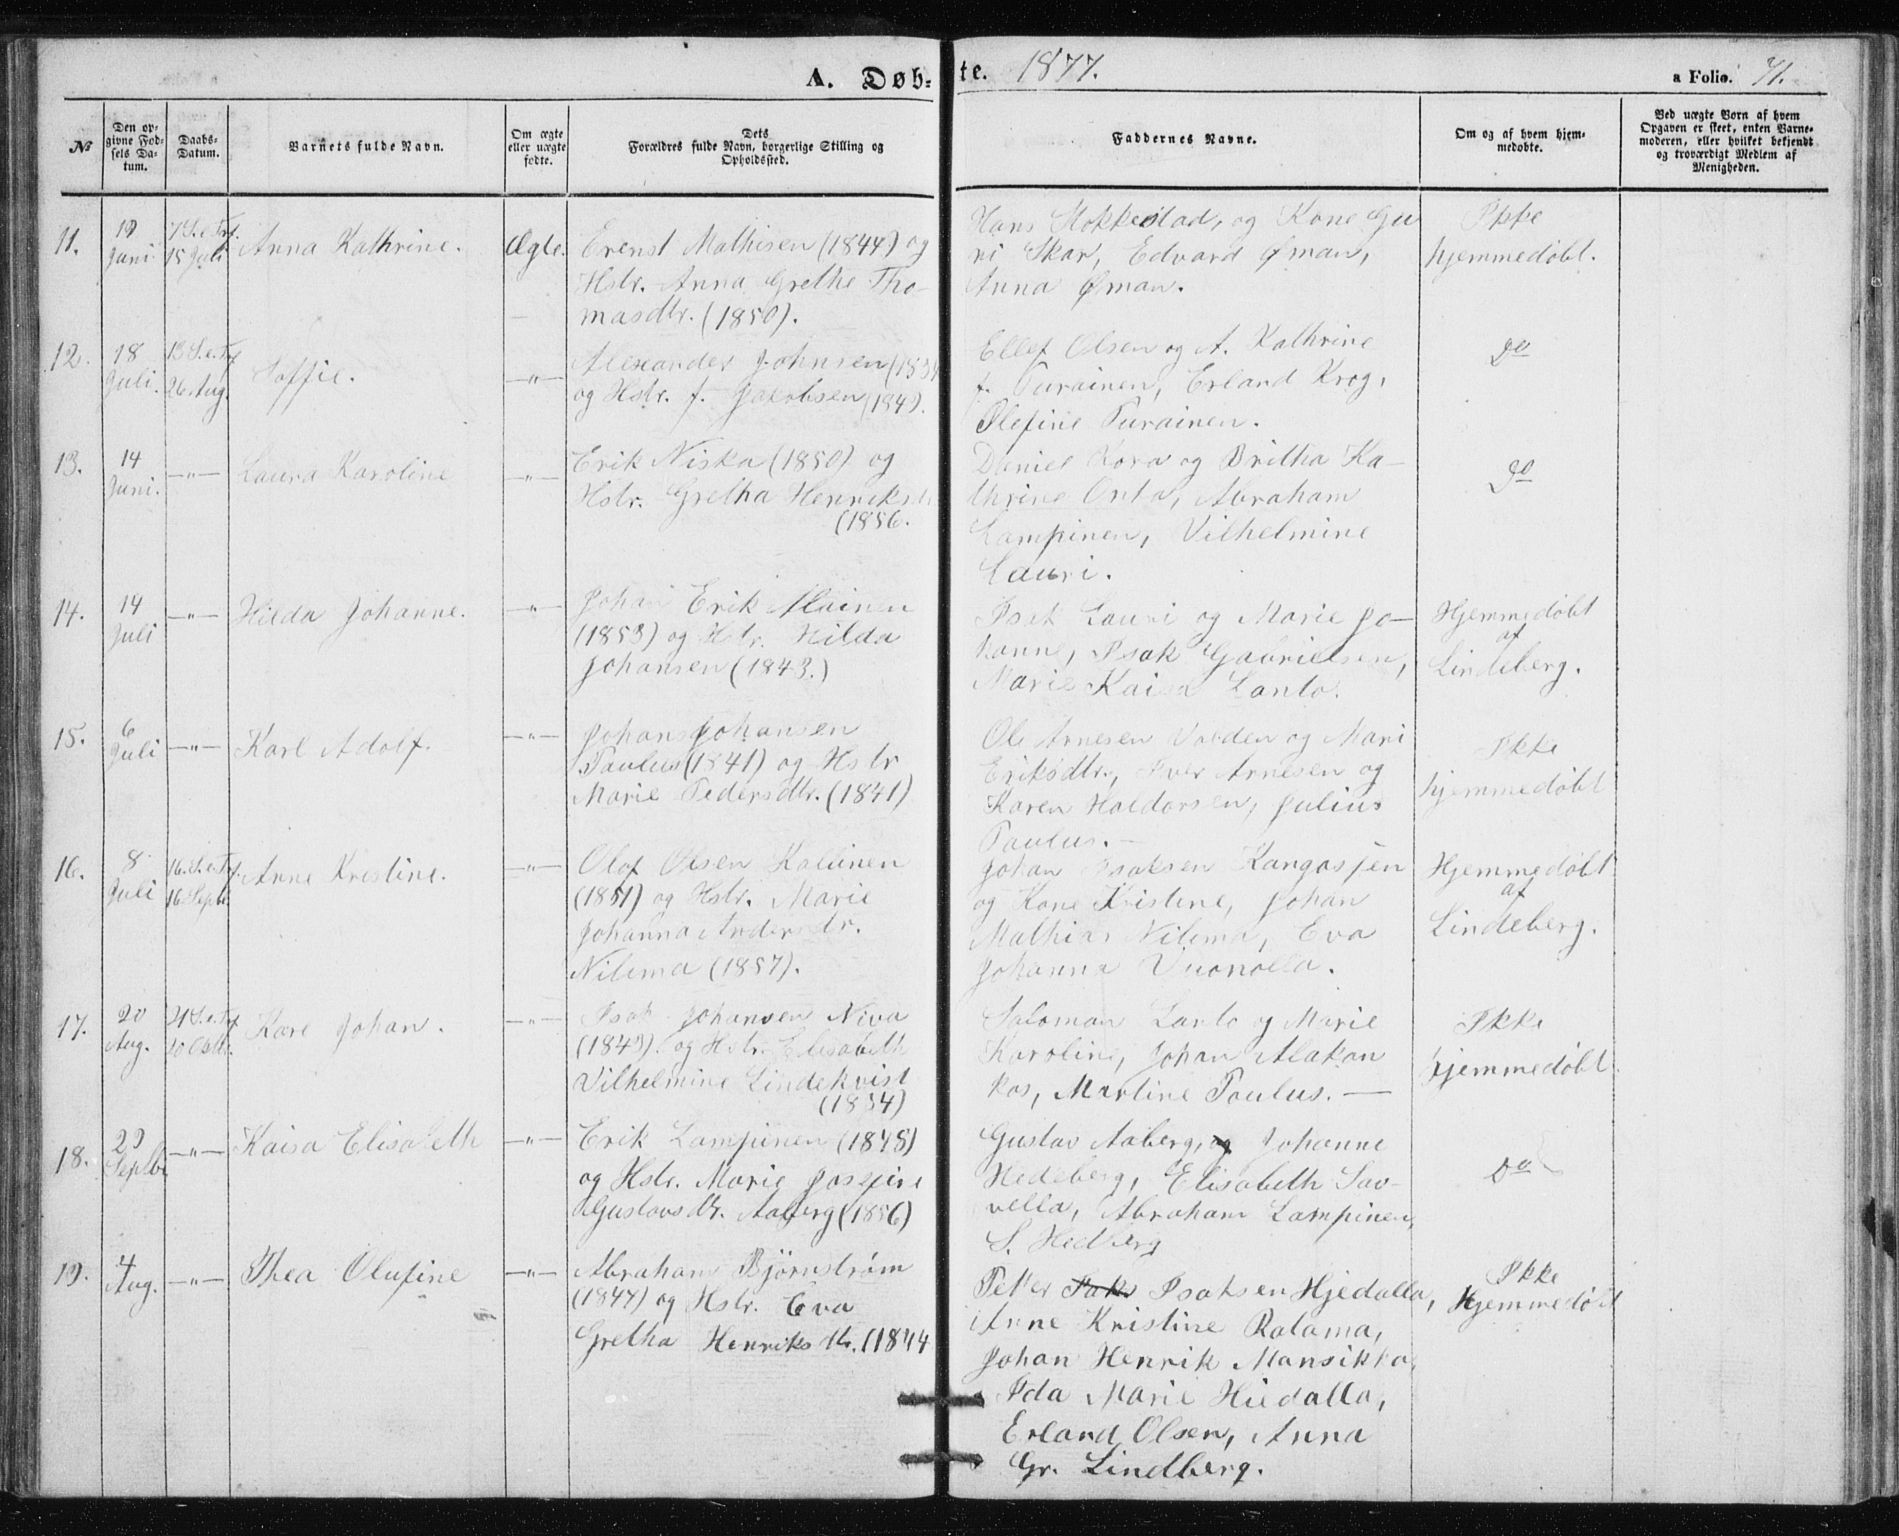 A. Døb-te. 1877.
a Folio. 71.
№
Den opgivne Fødsels Datum.
Daabs-Datum.
Barnets fulde Navn.
Om ægte eller uægte fødte.
Dets Forældres fulde Navn, borgerlige Stilling og Opholdssted.
Faddernes Navne.
Om og af hvem hjemmedøbte.
Ved uægte Børn af hvem Opgaven er skeet, enten Barnemoderen, eller hvilket bekjendt og troværdigt Medlem af Menigheden.
11.
Juni
7 S. e. Trf.
15 Juli
Anna Kathrine.
Ægte.
Erenst Mathisen (1844) og
Hstr. Anna Grethe Tho-
masdtr. (1850).
Hans Stokkestad, og Kone Gu
ri Skar, Edvard Øman,
Anna Øman.
Ikke
hjemmedøbt.
12.
18
Juli.
13 S. e. Trf
26 Aug.
Soffie.
—"—
Alexander Johnsen
og Hstr. f. Jakobsen
Ellef Olsen og A. Kathrine
f. Purainen, Erland Krog,
Olefine Purainen.
do
13.
14
Juni.
—"—
Laura Karoline
—"—
Erik Niska (1850) og
Hstr. Gretha Henriks
(1856.
Daniel Kora og Britha Ka-
thrine Onta, Abraham
Lampinen, Vilhelmine
Lauri.
do
14.
14
Juli
—"—
Hilda Johanne.
—"—
Johan Erik Alainen
(1853) og Hstr. Hilda
Johansen (1843.)
Isak Lauri og Marie Jo-
hanne, Isak Gabrielsen,
Marie Kaisa Lanto.
Hjemmedøbt
af
Lindeberg.
15.
6
Juli
—"—
Karl Adolf.
—"—
Johan Johansen
Paulus (1841) og Hstr
Marie Pedersdtr. (1841)
Ole Arnesen Volden og Mari
Eriksdtr., Iver Arnesen og
Karen Haldorsen, Julius
Paulus. —
Ikke
hjemmedøbt
16.
8
Juli
16. S. e. Trf.
16 Septr
Anne Kristine.
—"—
Olof Olsen Kallinen
(1851) og Hstr. Marie
Johanna Andersdtr.
Nilima (1857).
Johan Isaksen Kangasjen
og Kone Kristine, Johan
Mathias Nilima, Eva
Johanna Vuonolla.
Hjemmedøbt
af
Lindeberg.
17.
20
Aug.
21 S. e. Trf
Karl Johan.
—"—
Isak Johansen Niva
(1849) og Hstr. Elisabeth
Vilhelmine Lindekvist
(1854)
Saloman Lanto og Marie
Karoline, Johan Alakan
kos, Martine Paulus. —
Ikke
hjemmedøbt.
18.
29
Septbr
—"—
Kaisa Elisabeth
—"—
Erik Lampinen (1845)
og Hstr. Marie Josefine
Gustavsdtr. Aaberg (1856)
Gustav Aaberg, og Johanne
Hedeberg, Elisabeth Sav-
vella, Abraham Lampinen,
S. Hedberg
do
19.
4
Aug.
—"—
Thea Olufine
—"—
Abraham Björnström
(1847) og Hstr. Eva
Gretha Henriksdtr. (1844
Peter Isaksen Hjedalla,
Anne Kristine Ratama,
Johan Henrik Mansikka,
Ida Marie Hiedalla,
Erland Olsen, Anna
Gr. Lindberg.
Ikke
Hjemmedøbt